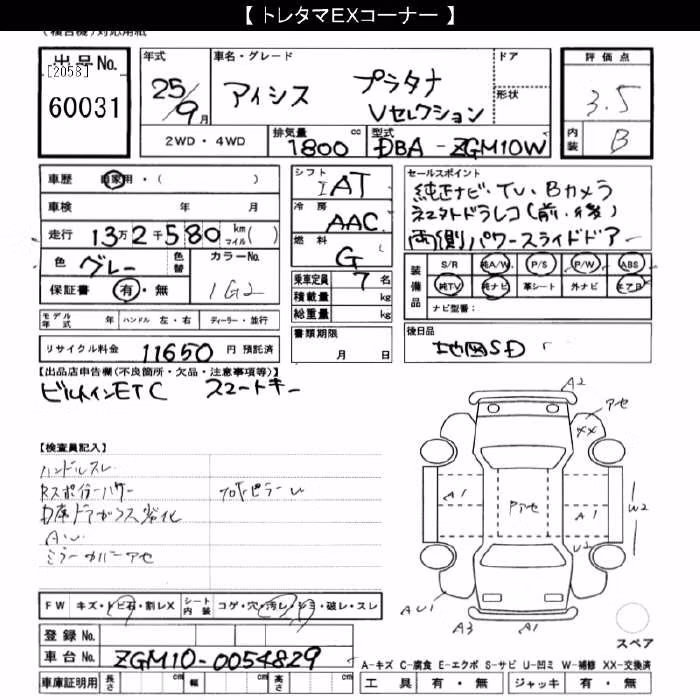 【 トレタマEXコーナー 】
出品No.
[2058]
60031
年式
25/9月
車名・グレード
アイシス プラタナ
Vセレクション
ドア
形状
評価点
3.5
内装
B
2WD・4WD
排気量
1800 cc
型式
DBA-ZGM10W
車歴 自家用・( )
車検 年 月
走行 13万2千580 km マイル( )
色 グレー
色替
カラーNo.
1G2
保証書 有・無
シフト
IAT
冷房
AAC
燃料
G
乗車定員 7名
積載量 kg
総重量 kg
書類期限
月 日
セールスポイント
純正ナビ・TV・Bカメラ
ネオトドラレコ(前・後)
両側パワースライドドアー
装備品
S/R 純A/W P/S P/W ABS
純TV 純ナビ 革シート 外ナビ エアB
ナビ型番:
モデル年式 年 ハンドル 左・右 ディーラー・並行
リサイクル料金 11650 円 預託済
後日品
地図SD
【出品店申告欄(不良箇所・欠品・注意事項等)】
ビルトインETC スマートキー
【検査員記入】
ハンドルスレ
Rスポイラーハガレ
ミラーカバーアセ
A2
アセ
XX
A1
Pアセ
A1
W2
U2
AU1
A3
A1
スペア
FW キズ・トビ石・割レX
シート内装 コゲ・穴・汚レ・シミ・破レ・スレ
登録No.
車台No. ZGM10-0054829
A-キズ C-腐食 E-エクボ S-サビ U-凹ミ W-補修 XX-交換済
車庫証明用 長さ cm 幅 cm 高さ cm
工具 有・無 ジャッキ 有・無